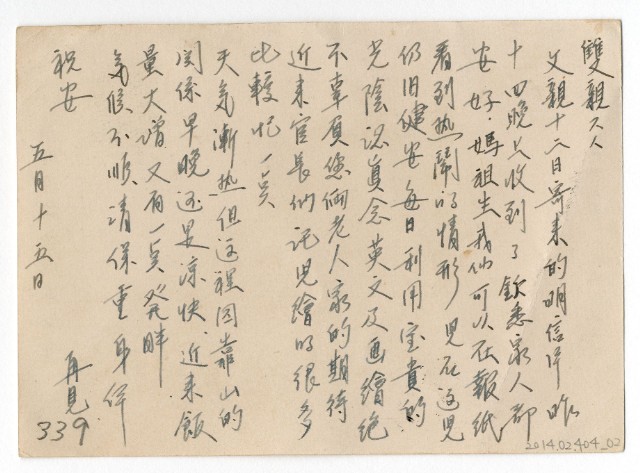 雙親大人
父親十二日寄來的明信片昨
十四晚上收到了欽悉家人都
安好.媽祖生我們可以在報紙
看到热鬧的情形 兒在這兒
仍旧健安每日利用宝貴的
光陰認真念英文及画繪绝
不辜負您倆老人家的期待
近來官長們託兒繪的很多
比較忙一点
天氣漸热但这裡因靠山的
関係早晚还是涼快.近來飯
量大增又有一点發胖
氣候不順請保重身体
祝安
再見
339
五月十五日
2014.02.404_02